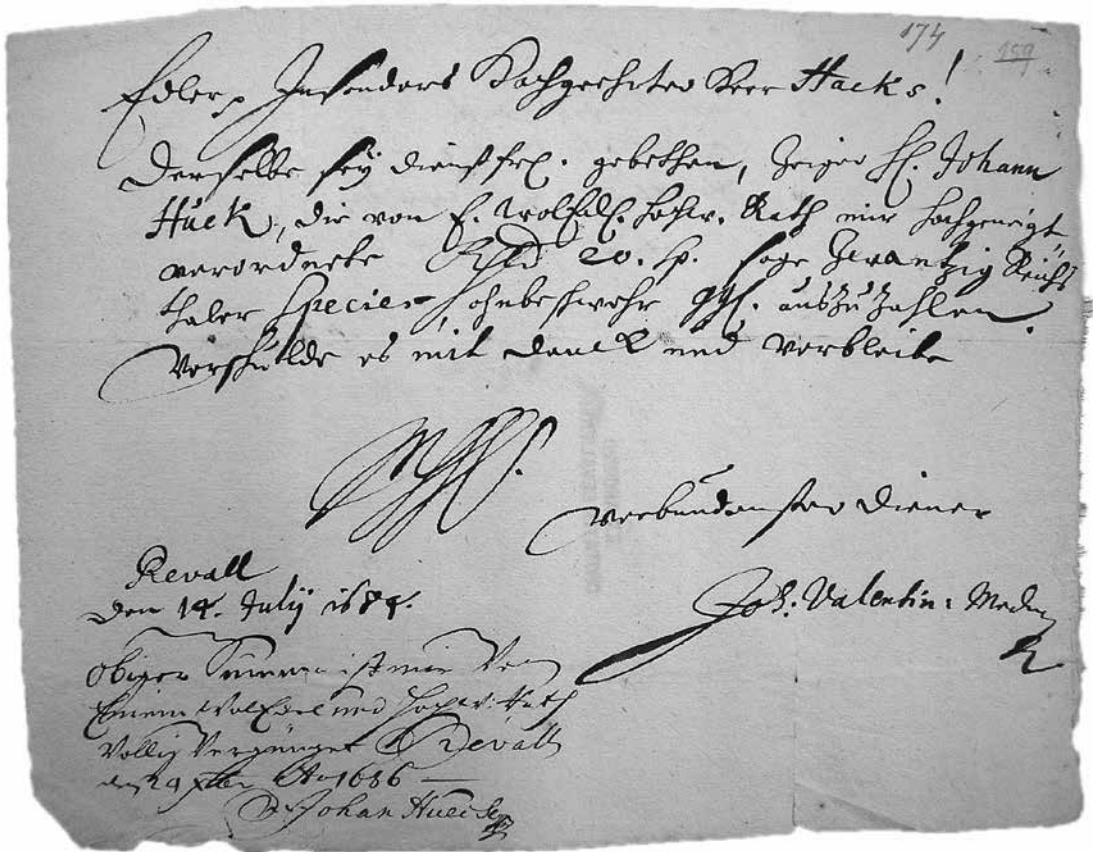 174 159
Edler, Insonders Hochgeehrter Herr Hacks!
Derselbe sey dienstfrl. gebethen, Zeiger H. Johann
Hüek, die von E. WolEdl. Hochw. Rath mir hochgeneigt
verordnete Rthd 20. sp. sage Zwantzig Reichs
thaler Species, ohnbeschwehr auszuzahlen.
Verschulde es mit Danck und verbleibe
Verbundenster Diener
Revall
den 14. Julij 1684.
Joh. Valentin: Meder
Obiger Summa ist mir von
Einem WolEdl und Hochw: Rath
Völlig Vergnüget Revall
den 9 Ao 1686
Johan Hueck